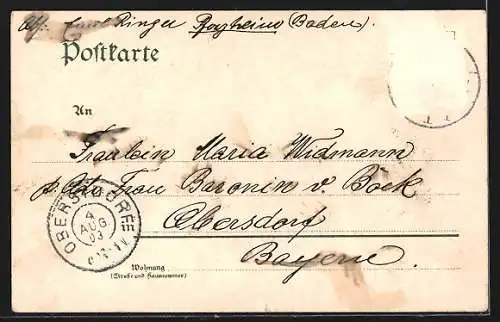 Abs: Emil Ringer Pforzheim (Baden).
Postkarte
An
Fräulein Maria Widmann
Frau Baronin v. Bock
Obersdorf
Bayern
OBERSTDORF
4
AUG
03
Wohnung
(Straße und Hausnummer)